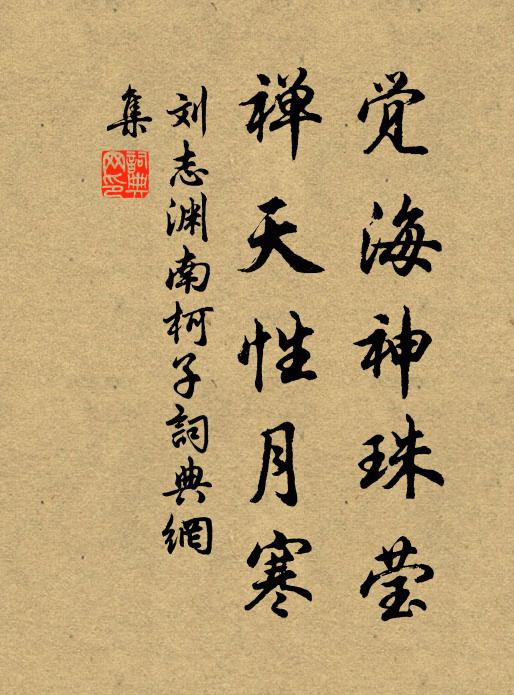 觉海神珠莹
禅天性月寒
刘志渊南柯子詞典網
集
詞典網印